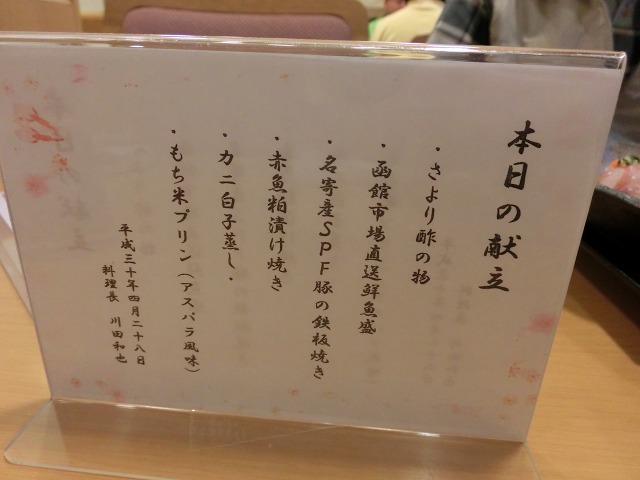 本日の献立
・さより酢の物
・函館市場直送鮮魚盛
・名寄産SPF豚の鉄板焼き
・赤魚粕漬け焼き
・カニ白子蒸し・
・もち米プリン(アスパラ風味)
平成三十年四月二十八日
料理長 川田和也